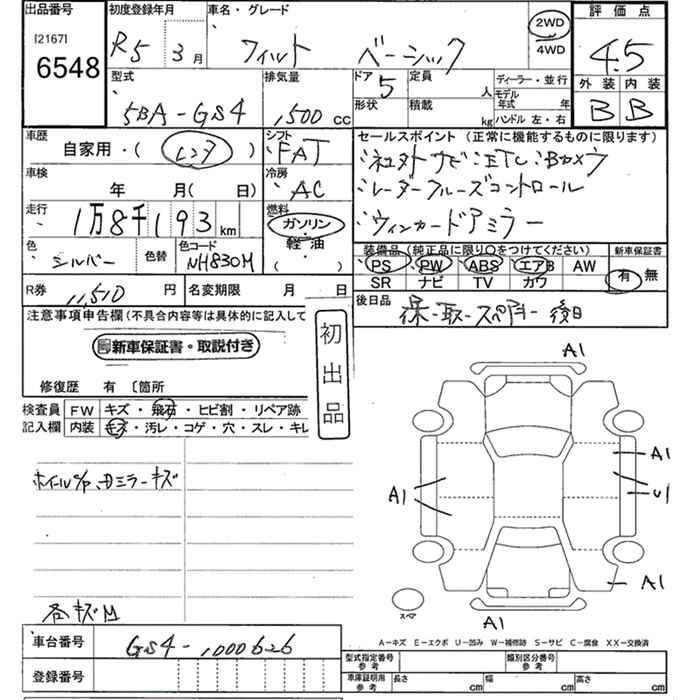 出品番号
[2167]
6548
初度登録年月
R5 3月
車名・グレード
フィット ベーシック
2WD
4WD
評価点
4.5
外装 内装
B B
型式
5BA-GS4
排気量
1,500 cc
ドア 5
形状
定員 人
積載 kg
ディーラー・並行
モデル年式 年
ハンドル 左・右
車歴
自家用・(レンタ)
シフト
FAT
セールスポイント (正常に機能するものに限ります)
社外ナビ ETC Bカメラ
レーダークルーズコントロール
ウィンカードアミラー
車検
年 月(日)
冷房
AC
走行
1万8千193 km
燃料
ガソリン・
軽油・
( )
色
シルバー
色替
色コード
NH830M
装備品 (純正品に限り○をつけてください)
PS PW ABS エアB AW
SR ナビ TV カワ
新車保証書
有 無
R券 11,510 円
名変期限 月 日
後日品
保-取-スペアキー 後日
注意事項申告欄(不具合内容等は具体的に記入して
新車保証書・取説付き
初出品
修復歴 有 〔箇所
検査員
記入欄
FW キズ・飛石・ヒビ割・リペア跡
内装 キズ・汚レ・コゲ・穴・スレ・キレ
ホイールC/P ドミラーキズ
各キズM
A1
A1
A1
U1
A1
A1
スペア
A-キズ E-エクボ U-凹み W-補修跡 S-サビ C-腐食 XX-交換済
車台番号
GS4-1000626
登録番号
型式指定番号
参考
類別区分番号
参考
車庫証明用
参考
長さ cm
幅 cm
高さ cm